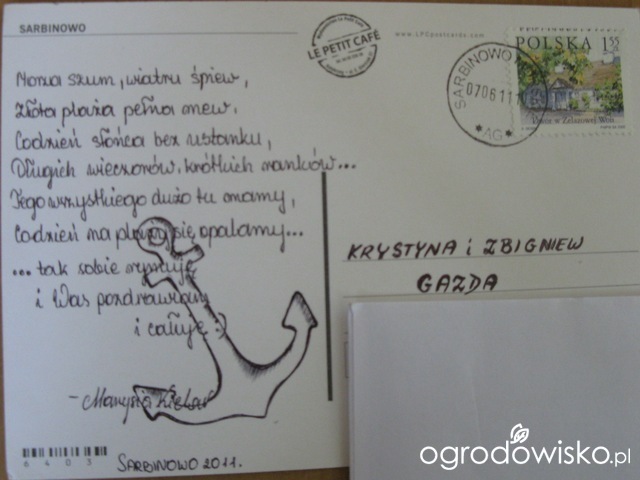 SARBINOWO
LE PETIT CAFÉ
www.LPCpostcards.com
POLSKA 1 55 ZŁ
Dwór w Żelazowej Woli
SARBINOWO
070611
*AG*
Morza szum, wiatru śpiew,
Złota plaża pełna mew.
Codzień słońca bez ustanku,
Długich wieczorów, krótkich ranków...
Tego wszystkiego dużo tu mamy,
Codzień na plaży się opalamy...
... tak sobie rymuję
i Was pozdrawiam
i całuję :)
- Marysia
KRYSTYNA i ZBIGNIEW
GAZDA
6403
SARBINOWO 2011.
ogrodowisko.pl